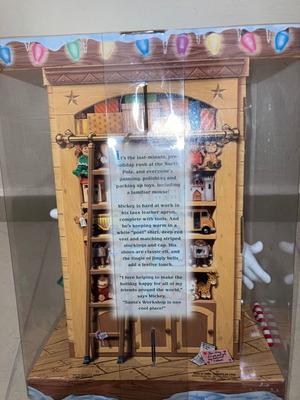 It's the last-minute, pre-
holiday rush at the North
Pole, and everyone's
painting, polishing and
packing up toys, including
a familiar mouse!
Mickey is hard at work in
his faux leather apron,
complete with tools. And
he's keeping warm in a
white "pool" shirt, deep red
vest and matching striped
stockings and cap. His
shoes are classic elf, and
the jingle of jingly bells
add a festive touch.
"I love helping to make the
holiday happy for all of my
friends around the world,"
says Mickey.
"Santa's Workshop is one
cool place!"